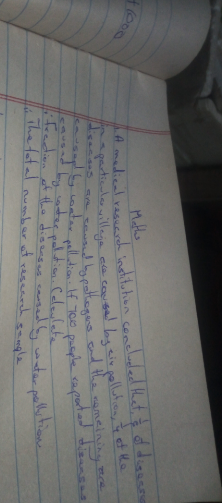 Maths
A medical research institution concluded that of diseases
in a particular village are caused by air pollution, of the
diseases are caused by pathogens and the remaining are
caused by water pollution. If 700 people reported diseases
caused by water pollution Calculate
i. Fraction of the diseases caused by water pollution
ii. The total number of research sample